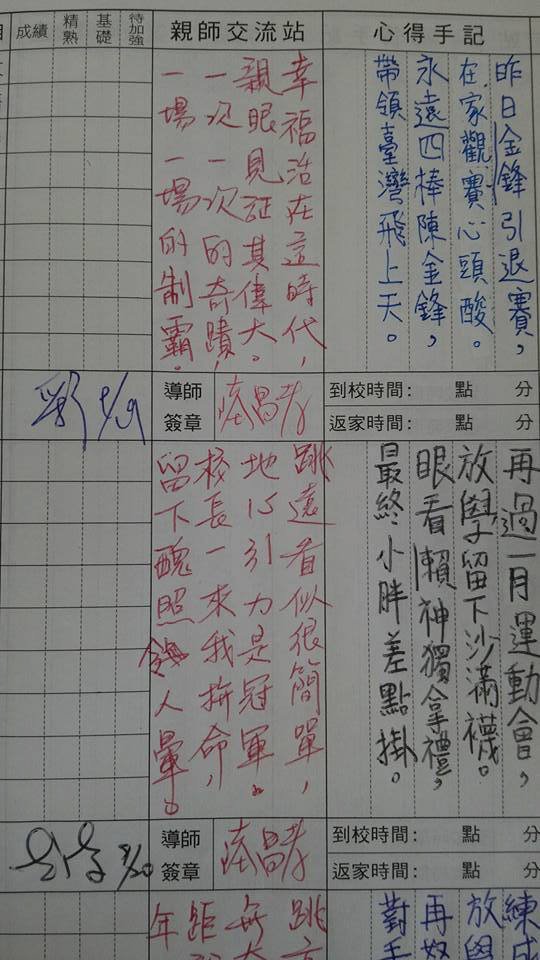 待加強
基礎
精熟
成績
親師交流站
心得手記
昨日金鋒引退賽，
在家觀賽心頭酸。
永遠四棒陳金鋒，
帶領臺灣飛上天。
幸福活在這時代，
親眼見証其偉大。
一次一次的奇蹟，
一場一場的制霸。
導師
簽章
到校時間： 點 分
返家時間： 點 分
9/19
再過一月運動會，
放學留下沙滿襪。
眼看賴神獨拿禮，
最終小胖差點掛。
跳遠看似很簡單，
地心引力是冠軍。
校長一來我拚命，
留下醜照人暈。
導師
簽章
到校時間： 點 分
返家時間： 點 分
9/20
練成
放學
再努
對手
跳
年距